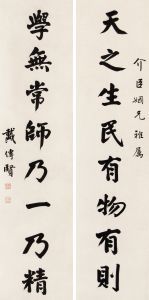 天之生民有物有則
介臣姻兄雅屬
學無常師乃一乃精
戴傳賢